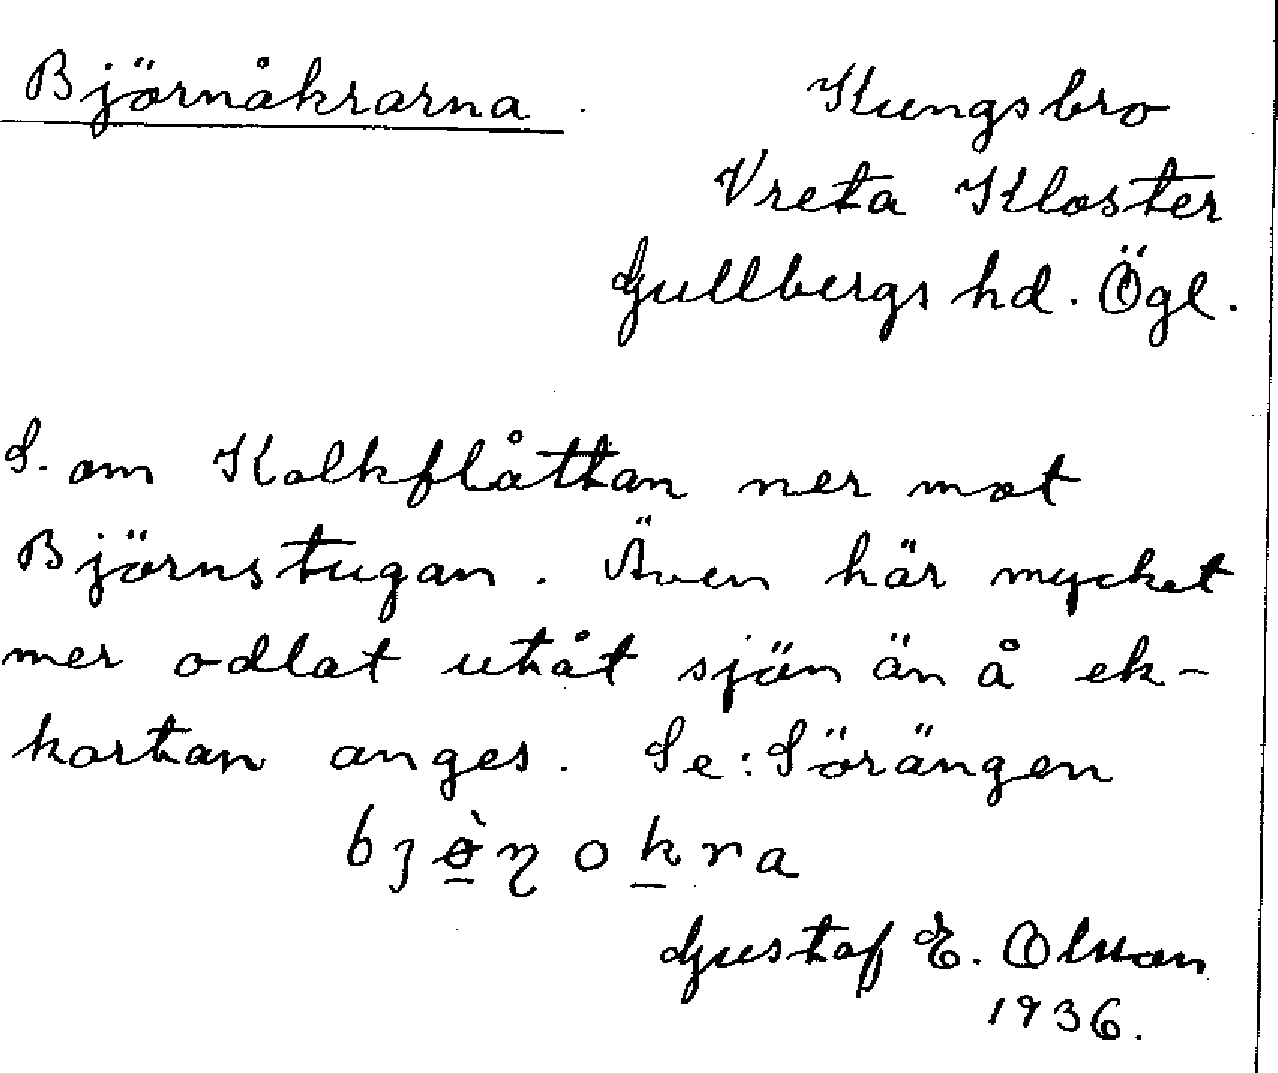 Björnåkrarna
Kungsbro
Vreta Kloster
Gullbergs hd. Ögl.
S. om Kolkflåttan ner mot
Björnstugan. Även här mycket
mer odlat utåt sjön än å ek-
kartan anges. Se: Sörängen
bjɵ̀ɳokra
Gustaf E. Olsson
1936.